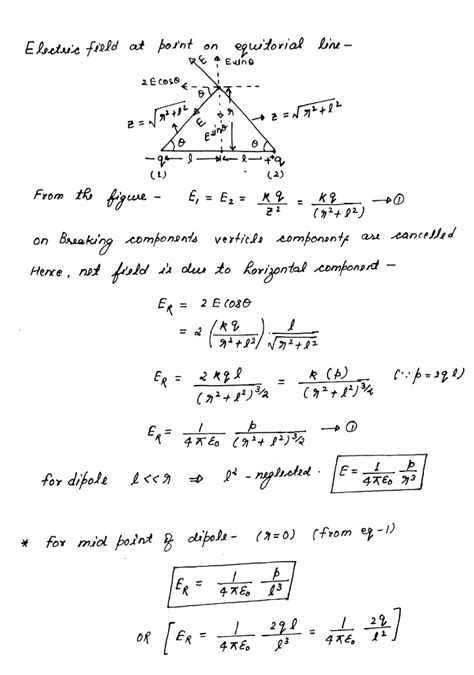 Electric field at point on equitorial line -
E E sinθ
2E cosθ
θ
z = √(r²+l²) E r → z = √(r²+l²)
E sinθ
θ θ
-q l l +q
(1) (2)
From the figure - E₁ = E₂ = kq/z² = kq/(r²+l²) → ①
on Breaking components verticle components are cancelled
Hence, net field is due to horizontal component -
E_R = 2E cosθ
= 2 (kq/(r²+l²)) · l/√(r²+l²)
E_R = 2kql/(r²+l²)^3/2 = k(p)/(r²+l²)^3/2 (∵ p = 2ql)
E_R = 1/4πε₀ p/(r²+l²)^3/2 → ①
for dipole l<<r ⇒ l² - neglected. E = 1/4πε₀ p/r³
* for mid point of dipole - (r=0) (from eq-1)
E_R = 1/4πε₀ p/l³
OR [E_R = 1/4πε₀ 2ql/l³ = 1/4πε₀ 2q/l²]